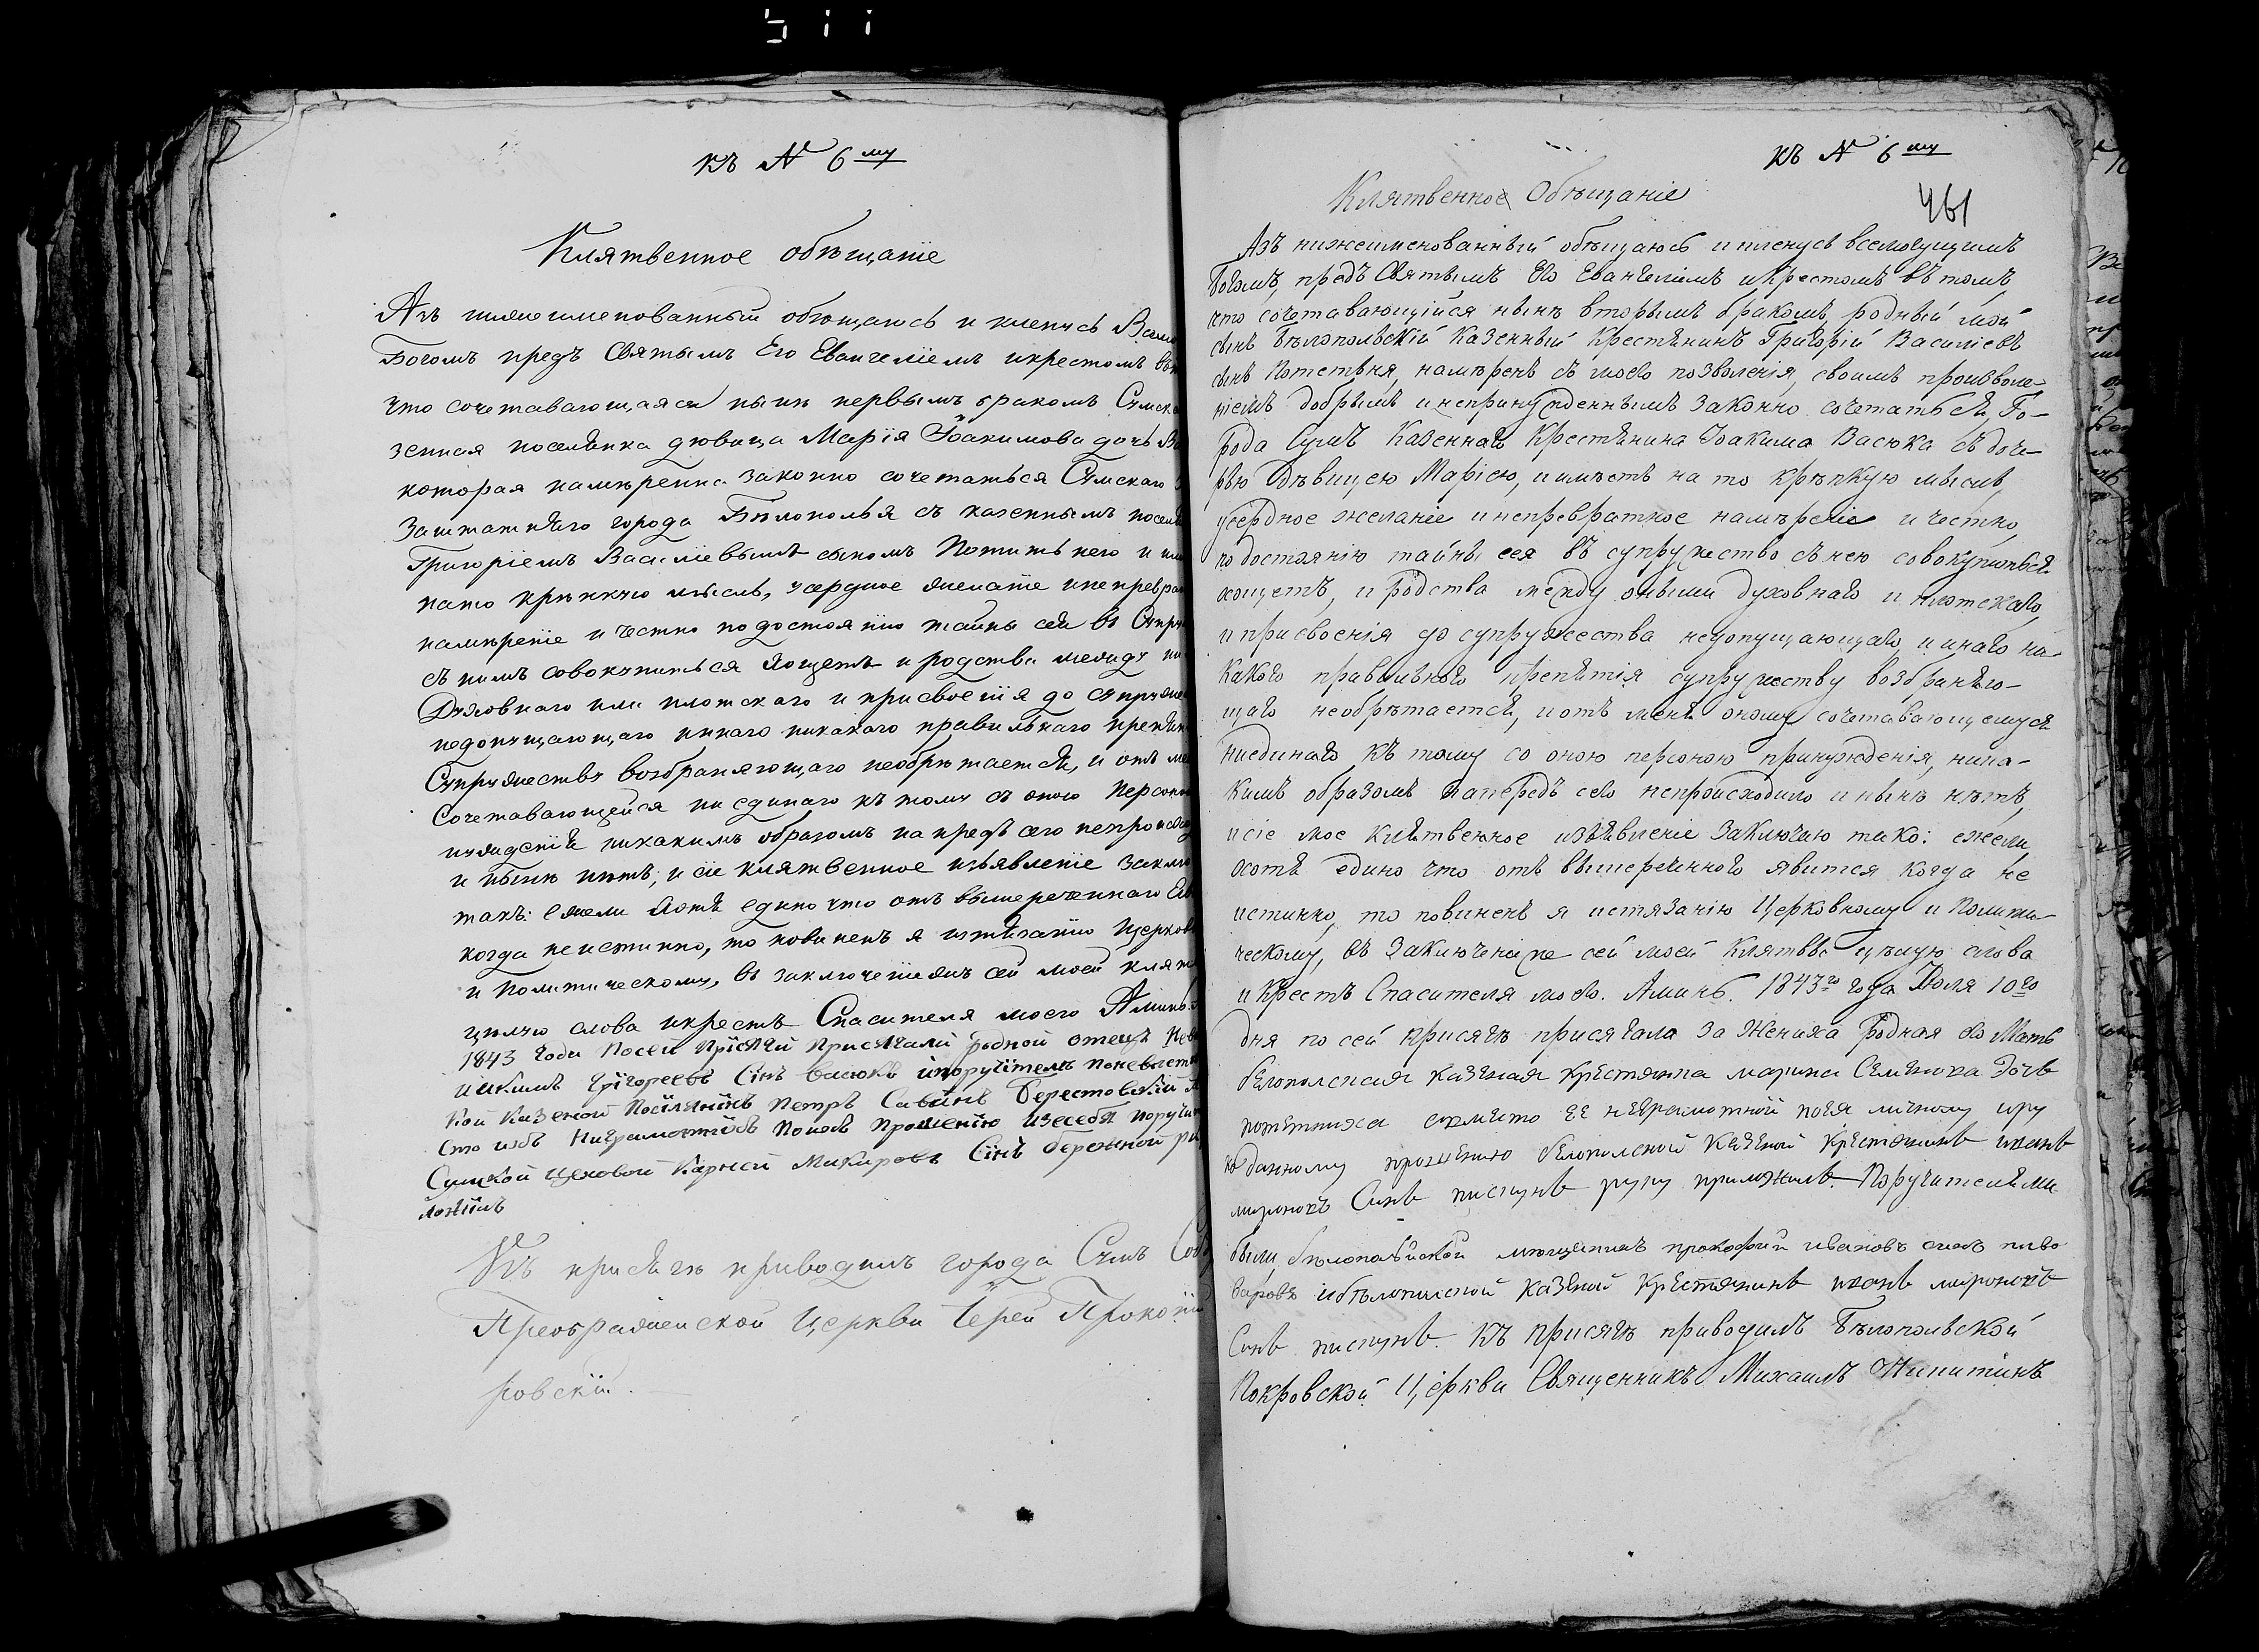 къ № 6му
Клятвенное обѣщаніе
Азъ нижеименованный обѣщаюсь и кленусь
Богомъ предъ Святымъ Его Евангеліемъ и крестомъ
что сочетавающаяся нынѣ первымъ бракомъ
зенная поселянка дѣвица Марія Іоакимова дочь
которая намѣренна законно сочетаться Сумскаго
Заштатнаго города Бѣлополья съ казеннымъ
Григоріемъ Василіевымъ сыномъ и
на то крѣпкую мысль, усердное желаніе и
намѣреніе и честно по достоянію тайны сея въ
съ нимъ совокупиться хощетъ и родства между
Духовнаго или плотскаго и присвоенія до
недопущающаго инаго никакого правильнаго
Супружеству возбраняющаго необрѣтается, и отъ
Сочетавающейся ни единаго къ тому съ оною
никакимъ образомъ напредъ сего
и нынѣ нѣтъ; и сіе клятвенное изъявленіе
такъ: ежели хотя едино что отъ вышереченнаго
когда неистинно, то повиненъ я истязанію
и Политическому, въ заключеніе жъ сей моей
цѣлую слова и крестъ Спасителя моего Аминь.
1843 года Посей Присяги Присягали родной отецъ
Григореевъ Сінъ Васюкъ
кой Казеной Петръ Савинъ Берестовскій
Прошенію
Сумской Цеховой Карней Сінъ Бережной
ложилъ
Къ присягѣ приводилъ города Сумъ
Преображенской Церкви Іерей
ровскій.
къ № 6му
461
Клятвенное Обѣщаніе
Азъ нижеименованный обѣщаюсь и кленусь всемогущимъ
Богомъ, предъ Святымъ Его Евангеліемъ и крестомъ въ томъ,
что сочетавающійся нынѣ вторымъ бракомъ, родный мой
сынъ Бѣлопольскій Казенный Крестянинъ Григорій Василіевъ
сынъ намѣренъ съ моего позволенія, своимъ произволе-
ніемъ добрымъ и непринужденнымъ законно сочетаться, Го-
рода Сумъ Казеннаго Крестянина Іоакима Васюка съ доче-
рью Дѣвицею Маріею, и имѣетъ на то крѣпкую мысль,
усердное желаніе и непревратное намѣреніе и честно,
по достоянію тайны сея въ супружество съ нею совокупиться
хощетъ, и родства между оными духовнаго и плотскаго,
и присвоенія до супружества недопущающаго, и инаго ни-
какого правильнаго препятія супружеству возбраняю-
щаго необрѣтается, и отъ меня оному сочетавающемуся
ниединаго къ тому со оною персоною принужденія, ника-
кимъ образомъ напередъ сего непроисходило и нынѣ нѣтъ,
и сіе мое клятвенное изъявленіе заключаю тако: ежели
хотя едино что отъ вышереченнаго явится когда не
истинно, то повиненъ я истязанію Церковному и Полити-
ческому, въ заключеніе же сей моей клятвы цѣлую слова
и Крестъ Спасителя моего. Аминь. 1843го года Июля 10го
дня по сей присягѣ присягала за Жениха родная его Мать
белополская казеная крестянка марина Семенова Дочь
а вместо ее неграмотной поея личному иру
коданному прошению белополской казеной крестянинъ иванъ
миронокъ Синъ руку приложилъ. Поручителями
были бѣлопольской мещанинъ прокофий ивановъ синъ пиво
варовъ и бѣлополской казеной крестянинъ иванъ миронокъ
Синъ Къ присягѣ приводилъ Бѣлопольской
Покровской Церкви Священникъ Михаилъ Никитинъ